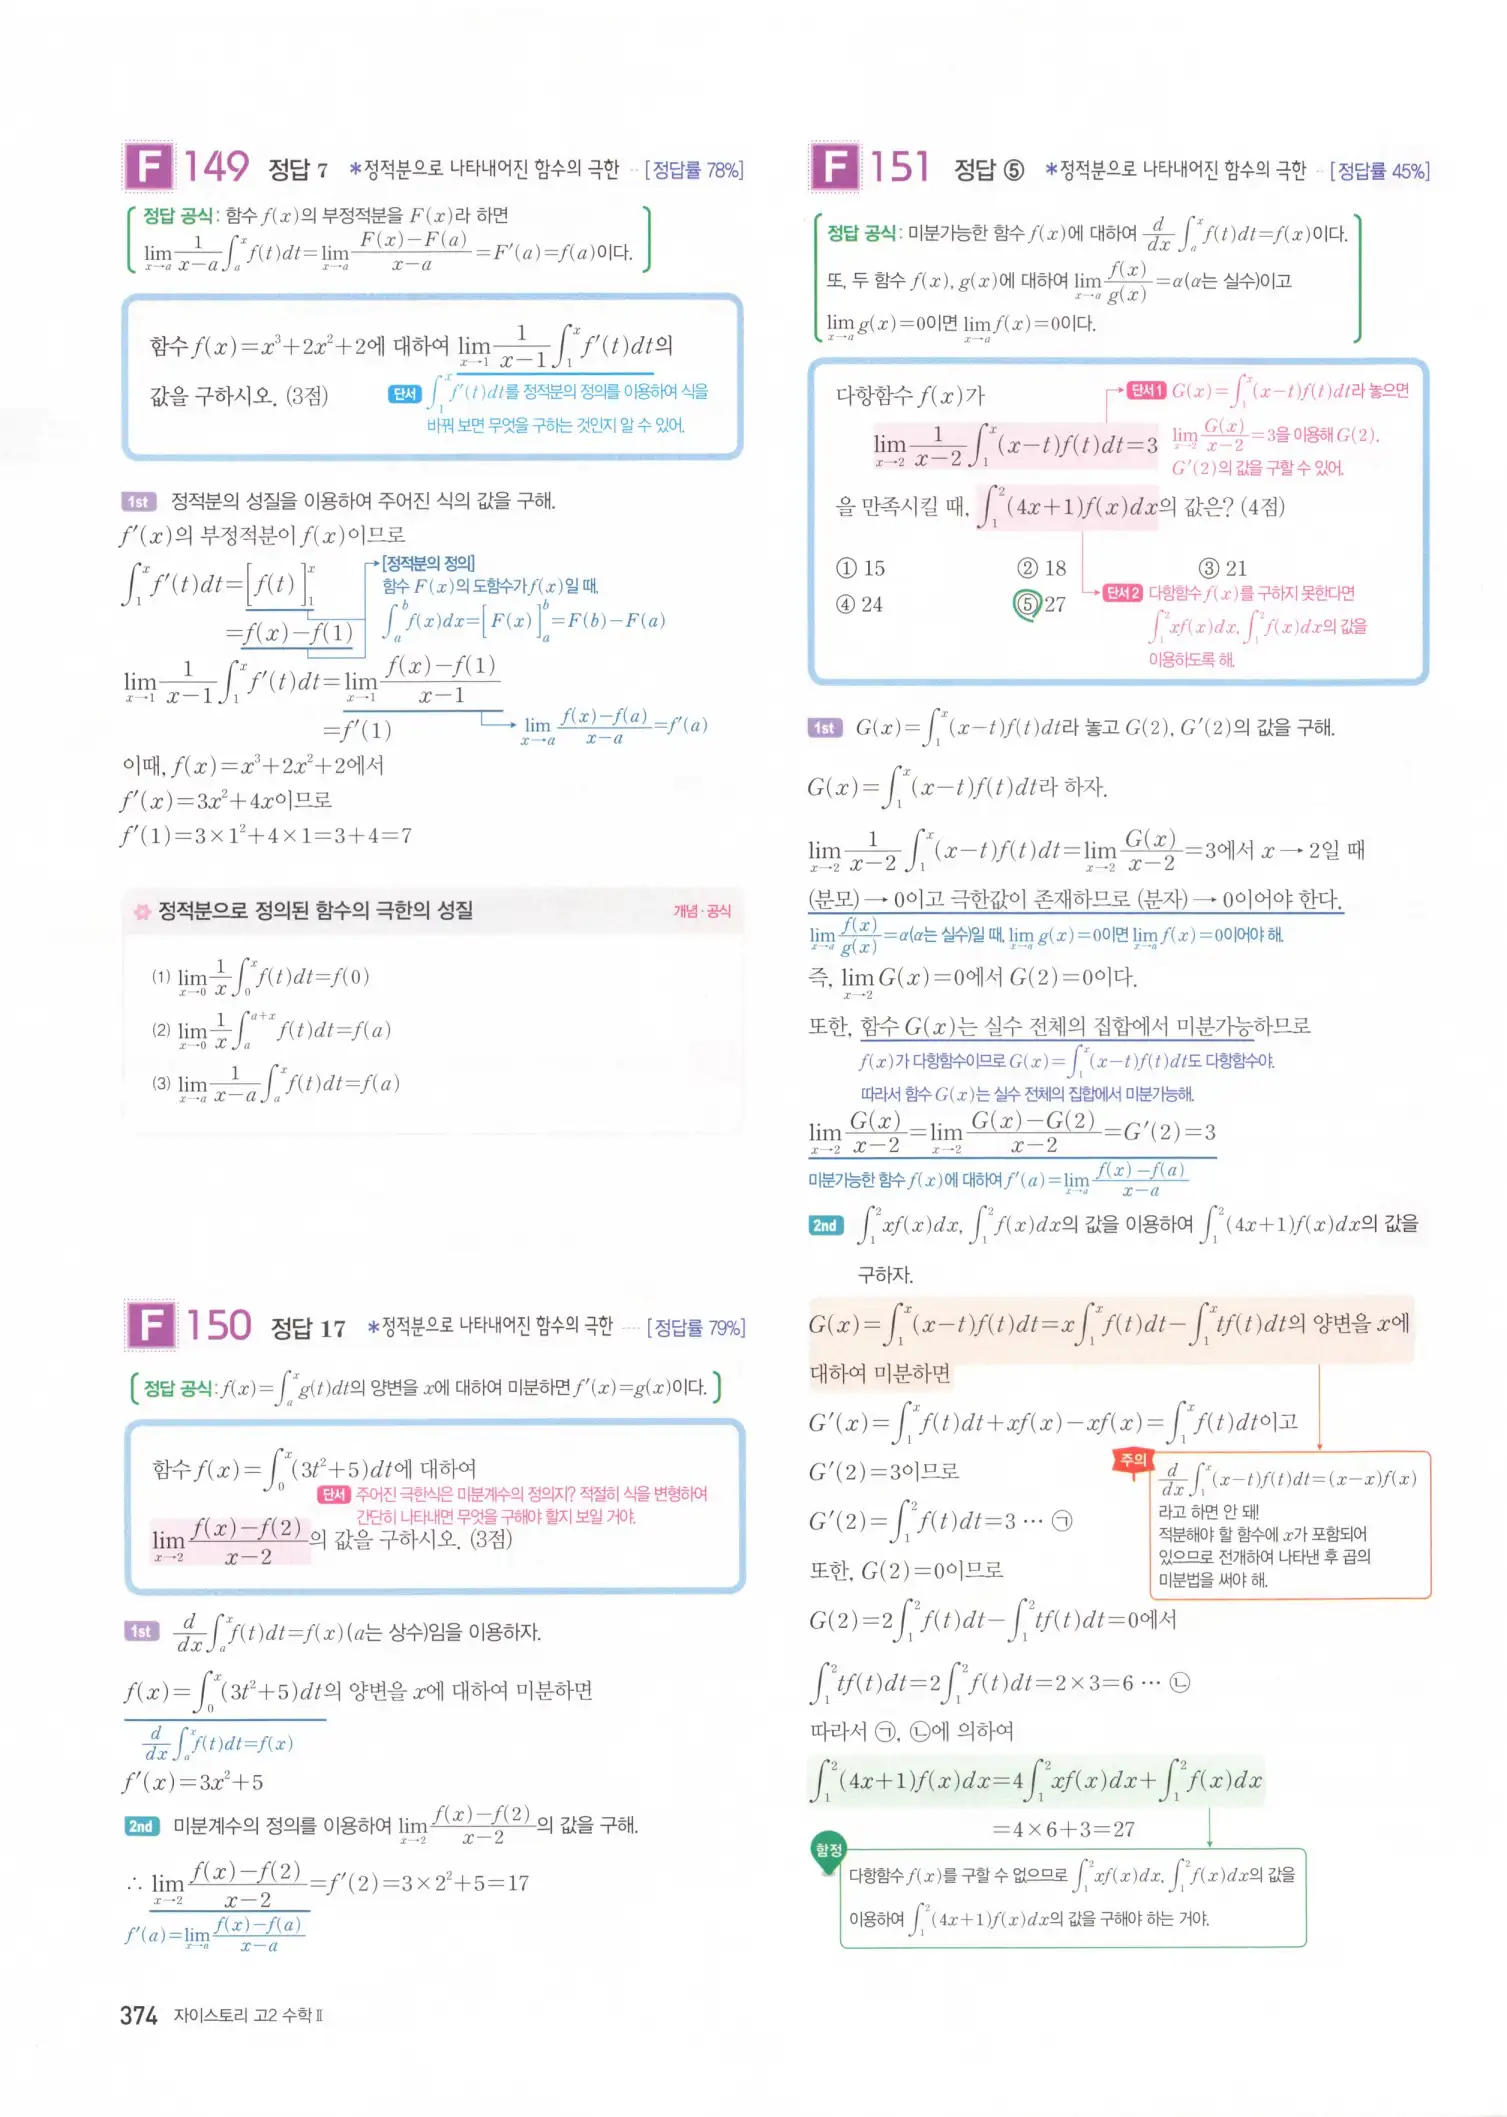 F 149 정답 7 *정적분으로 나타내어진 함수의 극한 ·· [정답률 78%]
정답 공식: 함수 f(x)의 부정적분을 F(x)라 하면
lim_{x→a} 1/(x−a) ∫_a^x f(t)dt=lim_{x→a} (F(x)−F(a))/(x−a)=F′(a)=f(a)이다.
함수 f(x)=x³+2x²+2에 대하여 lim_{x→1} 1/(x−1) ∫_1^x f′(t)dt의
값을 구하시오. (3점)
단서 ∫_1^x f′(t)dt를 정적분의 정의를 이용하여 식을
바꿔 보면 무엇을 구하는 것인지 알 수 있어.
1st 정적분의 성질을 이용하여 주어진 식의 값을 구해.
f′(x)의 부정적분이 f(x)이므로
∫_1^x f′(t)dt=[f(t)]_1^x
=f(x)−f(1)
[정적분의 정의]
함수 F(x)의 도함수가 f(x)일 때,
∫_a^b f(x)dx=[F(x)]_a^b=F(b)−F(a)
lim_{x→1} 1/(x−1) ∫_1^x f′(t)dt=lim_{x→1} (f(x)−f(1))/(x−1)
=f′(1)
lim_{x→a} (f(x)−f(a))/(x−a)=f′(a)
이때, f(x)=x³+2x²+2에서
f′(x)=3x²+4x이므로
f′(1)=3×1²+4×1=3+4=7
정적분으로 정의된 함수의 극한의 성질 개념·공식
(1) lim_{x→0} 1/x ∫_0^x f(t)dt=f(0)
(2) lim_{x→0} 1/x ∫_a^{a+x} f(t)dt=f(a)
(3) lim_{x→a} 1/(x−a) ∫_a^x f(t)dt=f(a)
F 150 정답 17 *정적분으로 나타내어진 함수의 극한 ···· [정답률 79%]
정답 공식: f(x)=∫_a^x g(t)dt의 양변을 x에 대하여 미분하면 f′(x)=g(x)이다.
함수 f(x)=∫_0^x (3t²+5)dt에 대하여
단서 주어진 극한식은 미분계수의 정의지? 적절히 식을 변형하여
간단히 나타내면 무엇을 구해야 할지 보일 거야.
lim_{x→2} (f(x)−f(2))/(x−2)의 값을 구하시오. (3점)
1st d/dx ∫_a^x f(t)dt=f(x)(a는 상수)임을 이용하자.
f(x)=∫_0^x (3t²+5)dt의 양변을 x에 대하여 미분하면
d/dx ∫_a^x f(t)dt=f(x)
f′(x)=3x²+5
2nd 미분계수의 정의를 이용하여 lim_{x→2} (f(x)−f(2))/(x−2)의 값을 구해.
∴ lim_{x→2} (f(x)−f(2))/(x−2)=f′(2)=3×2²+5=17
f′(a)=lim_{x→a} (f(x)−f(a))/(x−a)
374 자이스토리 고2 수학Ⅱ
F 151 정답 ⑤ *정적분으로 나타내어진 함수의 극한 ·· [정답률 45%]
정답 공식: 미분가능한 함수 f(x)에 대하여 d/dx ∫_a^x f(t)dt=f(x)이다.
또, 두 함수 f(x), g(x)에 대하여 lim_{x→a} f(x)/g(x)=α(α는 실수)이고
lim_{x→a} g(x)=0이면 lim_{x→a} f(x)=0이다.
다항함수 f(x)가
lim_{x→2} 1/(x−2) ∫_1^x (x−t)f(t)dt=3
단서1 G(x)=∫_1^x (x−t)f(t)dt라 놓으면
lim_{x→2} G(x)/(x−2)=3을 이용해 G(2),
G′(2)의 값을 구할 수 있어.
을 만족시킬 때, ∫_1^2 (4x+1)f(x)dx의 값은? (4점)
① 15 ② 18 ③ 21
④ 24 ⑤ 27
단서2 다항함수 f(x)를 구하지 못한다면
∫_1^2 xf(x)dx, ∫_1^2 f(x)dx의 값을
이용하도록 해.
1st G(x)=∫_1^x (x−t)f(t)dt라 놓고 G(2), G′(2)의 값을 구해.
G(x)=∫_1^x (x−t)f(t)dt라 하자.
lim_{x→2} 1/(x−2) ∫_1^x (x−t)f(t)dt=lim_{x→2} G(x)/(x−2)=3에서 x → 2일 때
(분모) → 0이고 극한값이 존재하므로 (분자) → 0이어야 한다.
lim_{x→a} f(x)/g(x)=α(α는 실수)일 때, lim_{x→a} g(x)=0이면 lim_{x→a} f(x)=0이어야 해.
즉, lim_{x→2} G(x)=0에서 G(2)=0이다.
또한, 함수 G(x)는 실수 전체의 집합에서 미분가능하므로
f(x)가 다항함수이므로 G(x)=∫_1^x (x−t)f(t)dt도 다항함수야.
따라서 함수 G(x)는 실수 전체의 집합에서 미분가능해.
lim_{x→2} G(x)/(x−2)=lim_{x→2} (G(x)−G(2))/(x−2)=G′(2)=3
미분가능한 함수 f(x)에 대하여 f′(a)=lim_{x→a} (f(x)−f(a))/(x−a)
2nd ∫_1^2 xf(x)dx, ∫_1^2 f(x)dx의 값을 이용하여 ∫_1^2 (4x+1)f(x)dx의 값을
구하자.
G(x)=∫_1^x (x−t)f(t)dt=x∫_1^x f(t)dt−∫_1^x tf(t)dt의 양변을 x에
대하여 미분하면
G′(x)=∫_1^x f(t)dt+xf(x)−xf(x)=∫_1^x f(t)dt이고
G′(2)=3이므로
G′(2)=∫_1^2 f(t)dt=3 ··· ㉠
주의
d/dx ∫_1^x (x−t)f(t)dt=(x−x)f(x)
라고 하면 안 돼!
적분해야 할 함수에 x가 포함되어
있으므로 전개하여 나타낸 후 곱의
미분법을 써야 해.
또한, G(2)=0이므로
G(2)=2∫_1^2 f(t)dt−∫_1^2 tf(t)dt=0에서
∫_1^2 tf(t)dt=2∫_1^2 f(t)dt=2×3=6 ··· ㉡
따라서 ㉠, ㉡에 의하여
∫_1^2 (4x+1)f(x)dx=4∫_1^2 xf(x)dx+∫_1^2 f(x)dx
=4×6+3=27
함정
다항함수 f(x)를 구할 수 없으므로 ∫_1^2 xf(x)dx, ∫_1^2 f(x)dx의 값을
이용하여 ∫_1^2 (4x+1)f(x)dx의 값을 구해야 하는 거야.